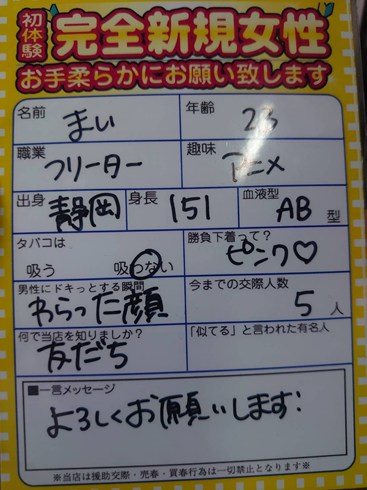 初体験
完全新規女性
お手柔らかにお願い致します
名前 まい
年齢 23
職業 フリーター
趣味 アニメ
出身 静岡
身長 151
血液型 AB 型
タバコは
吸う 吸わない
勝負下着って?
ピンク♡
男性にドキっとする瞬間
わらった顔
今までの交際人数
5 人
何で当店を知りましたか?
友だち
「似てる」と言われた有名人
■一言メッセージ
よろしくお願いします!
※当店は援助交際・売春・買春行為は一切禁止となります※